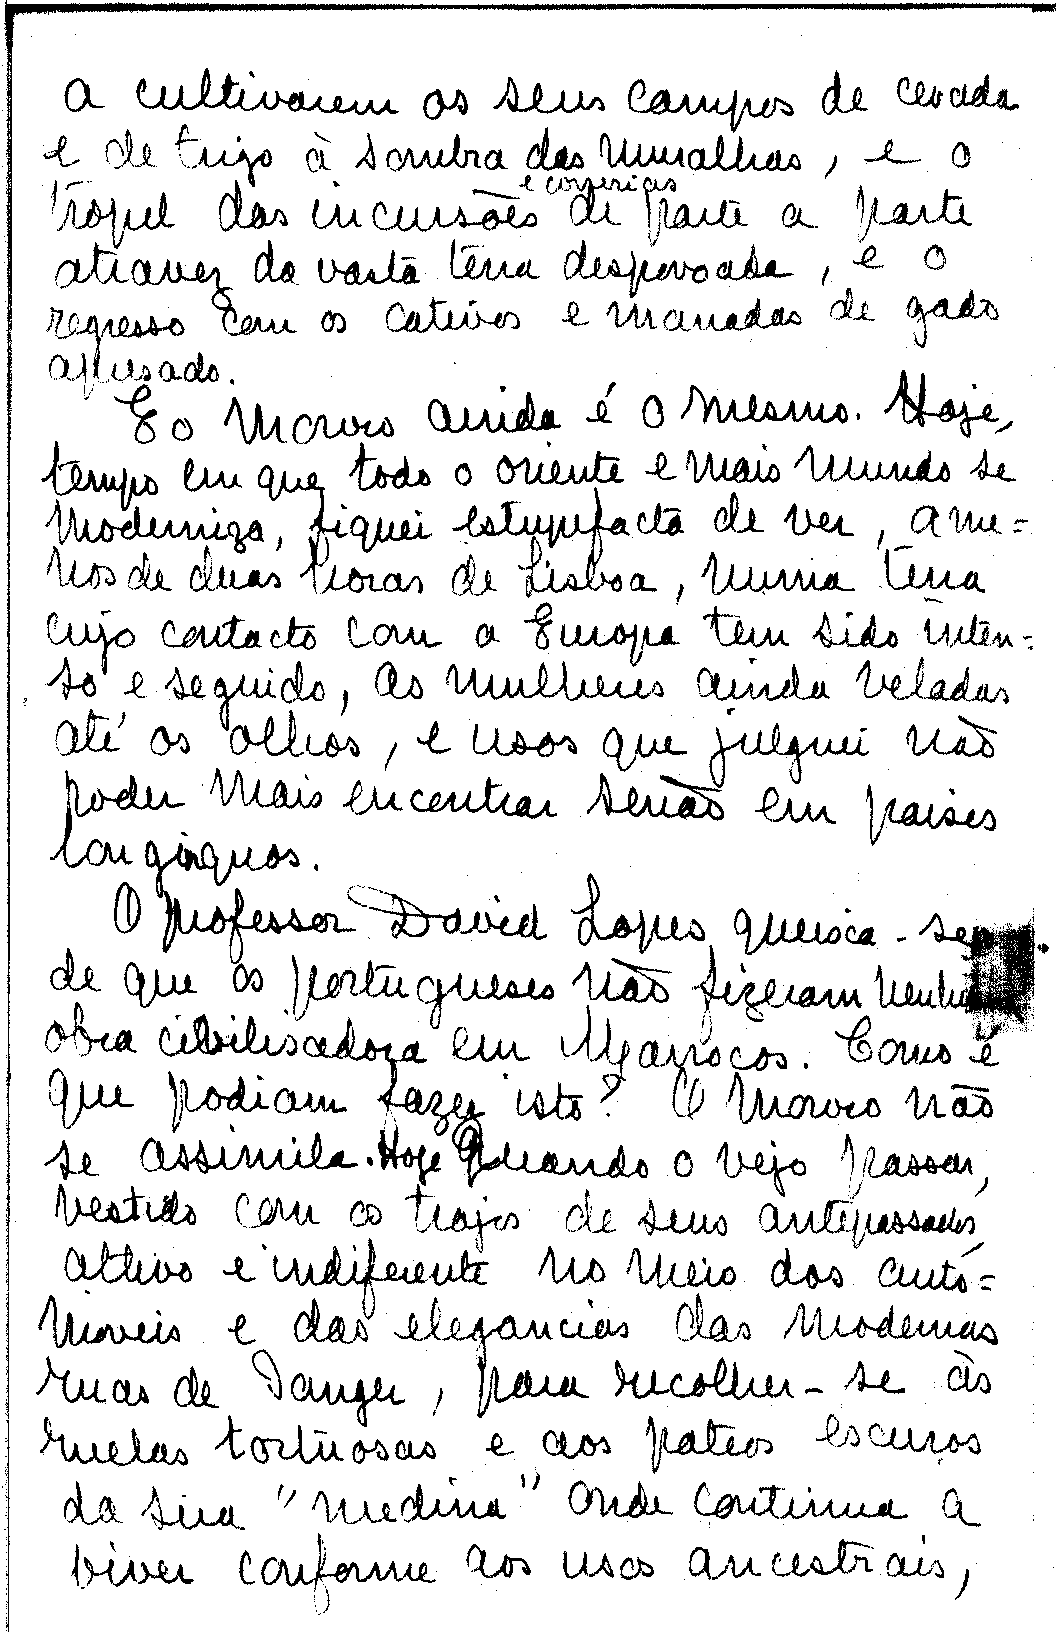 a cultivarem os seus campos de cevada
e de trigo à sombra das muralhas, e o
e correrias
tropel das incursões de parte a parte
atravez da vasta terra despovoada, e o
regresso com os cativos e manadas de gado
apresado.
E o Mouro ainda é o mesmo. Hoje,
tempo em que todo o oriente e mais mundo se
moderniza, fiquei estupefacta de ver, a me=
nos de duas horas de Lisboa, numa terra
cujo contacto com a Europa tem sido inten=
so e seguido, as mulheres ainda veladas
até os olhos, e usos que julguei não
poder mais encontrar senão em paises
longinquos.
O professor David Lopes queixa-se
de que os portugueses não fizeram
obra civilisadora em Marrocos. Como é
que podiam fazer isto? O Mouro não
se assimila. Hoje Quando o vejo passar,
vestido com os trajos de seus antepassados,
altivo e indiferente no meio dos autó=
moveis e das elegancias das modernas
ruas de Tanger, para recolher-se às
ruelas tortuosas e aos pateos escuros
da sua "medina" onde continua a
viver conforme aos usos ancestrais,